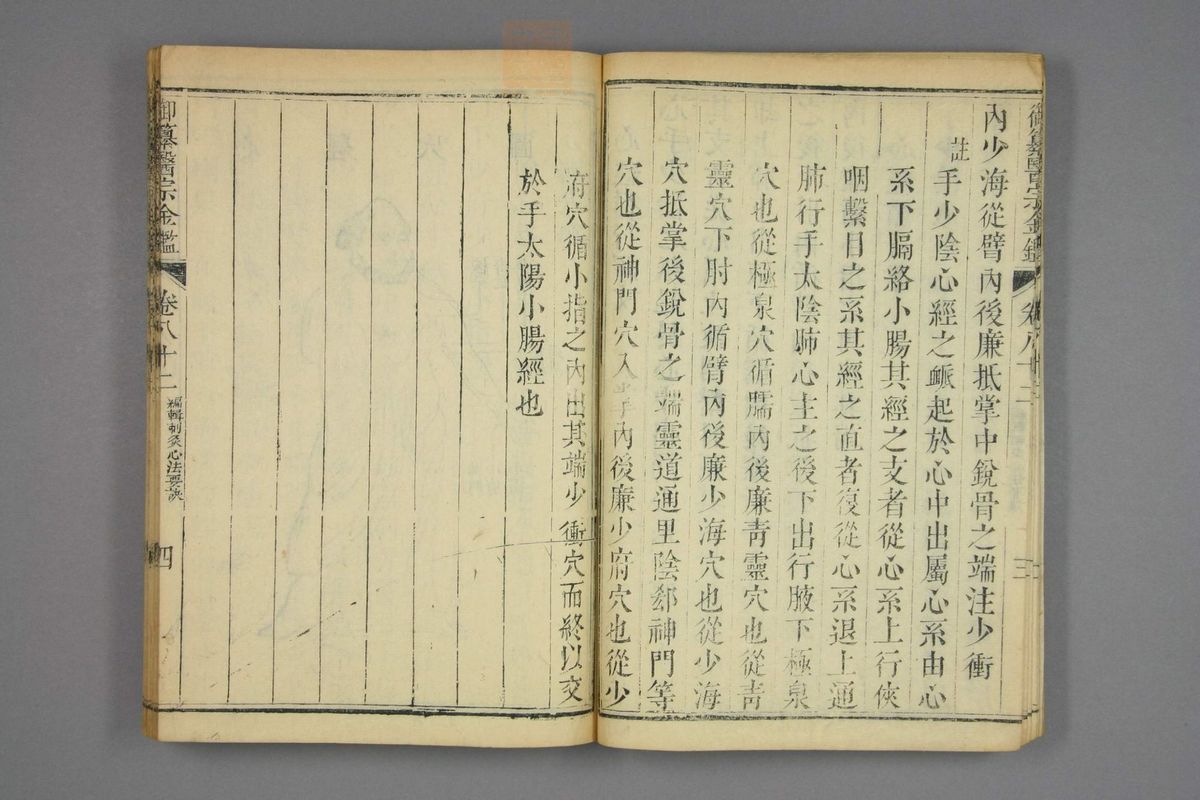 御纂醫宗金鑑 卷八十二 三
內少海從臂內後廉抵掌中銳骨之端注少衝
註手少陰心經之脈起於心中出屬心系由心
系下膈絡小腸其經之支者從心系上行俠
咽繫目之系其經之直者復從心系退上通
肺行手太陰肺心主之後下出行腋下極泉
穴也從極泉穴循臑內後廉青靈穴也從青
靈穴下肘內循臂內後廉少海穴也從少海
穴抵掌後銳骨之端靈道通里陰郄神門等
穴也從神門穴入掌內後廉少府穴也從少
府穴循小指之內出其端少衝穴而終以交
於手太陽小腸經也
御纂醫宗金鑑 卷八十二 編輯刺灸心法要訣 四